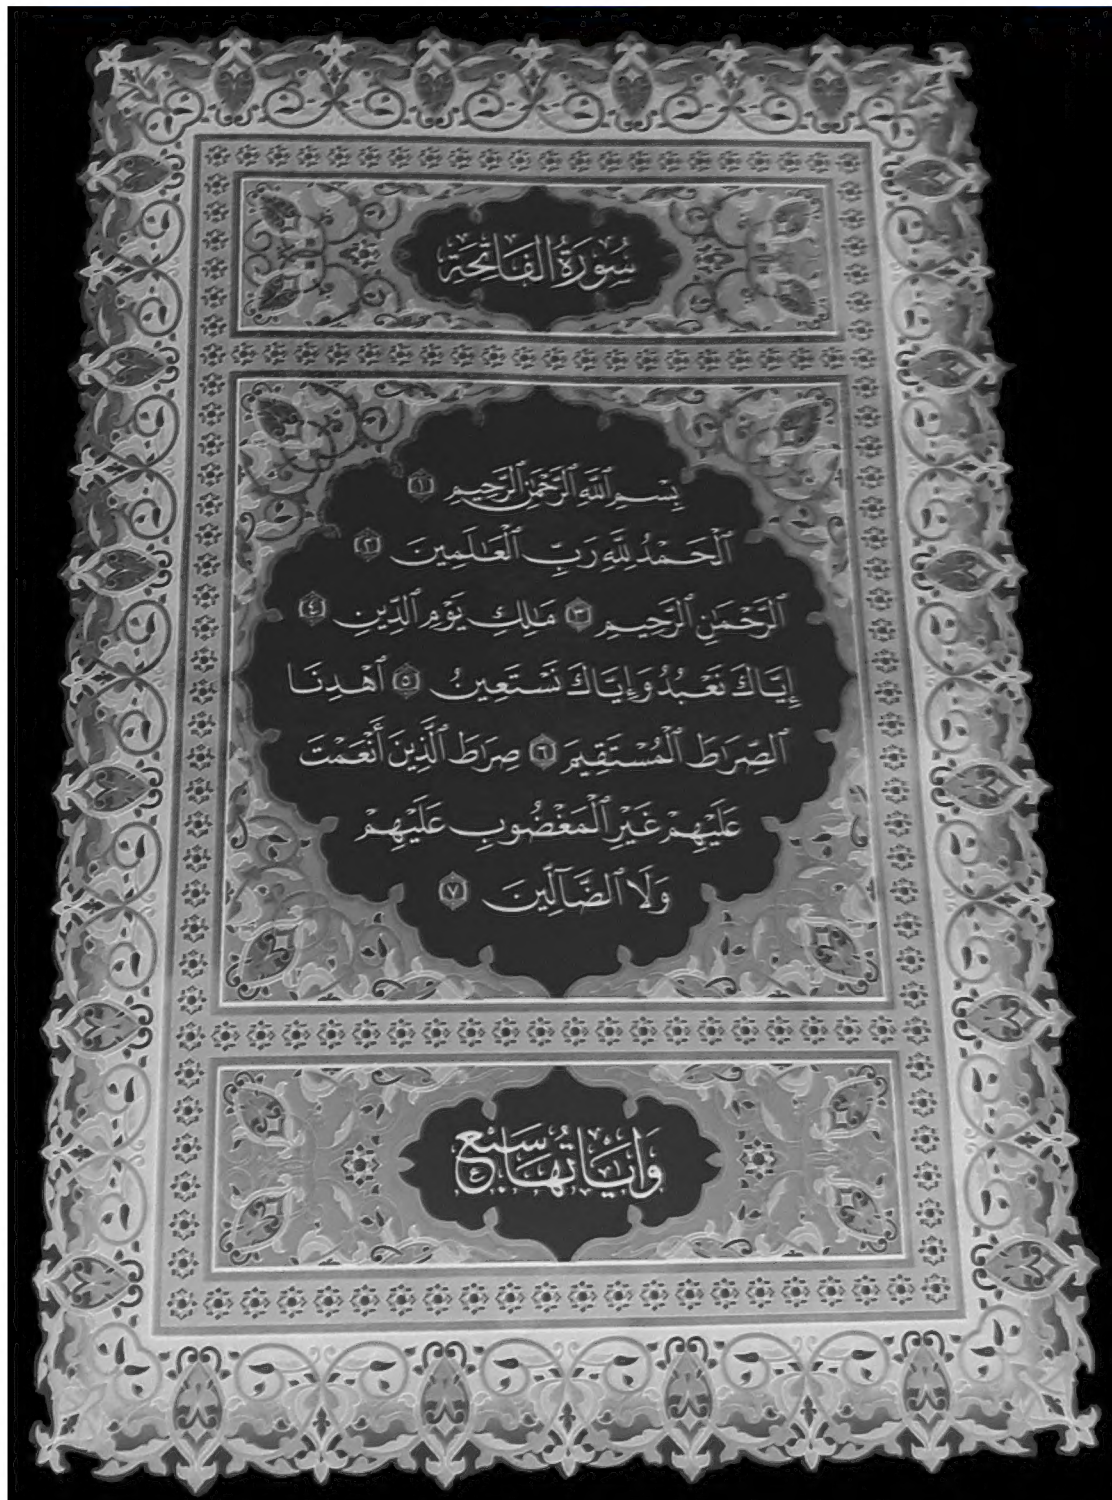 سُورَةُ الفَاتِحَةِ
بِسْمِ ٱللَّهِ ٱلرَّحْمَٰنِ ٱلرَّحِيمِ ١
ٱلْحَمْدُ لِلَّهِ رَبِّ ٱلْعَٰلَمِينَ ٢
ٱلرَّحْمَٰنِ ٱلرَّحِيمِ ٣ مَٰلِكِ يَوْمِ ٱلدِّينِ ٤
إِيَّاكَ نَعْبُدُ وَإِيَّاكَ نَسْتَعِينُ ٥ ٱهْدِنَا
ٱلصِّرَٰطَ ٱلْمُسْتَقِيمَ ٦ صِرَٰطَ ٱلَّذِينَ أَنْعَمْتَ
عَلَيْهِمْ غَيْرِ ٱلْمَغْضُوبِ عَلَيْهِمْ
وَلَا ٱلضَّآلِّينَ ٧
وَاٰيَاتُهَا سَبْعٌ